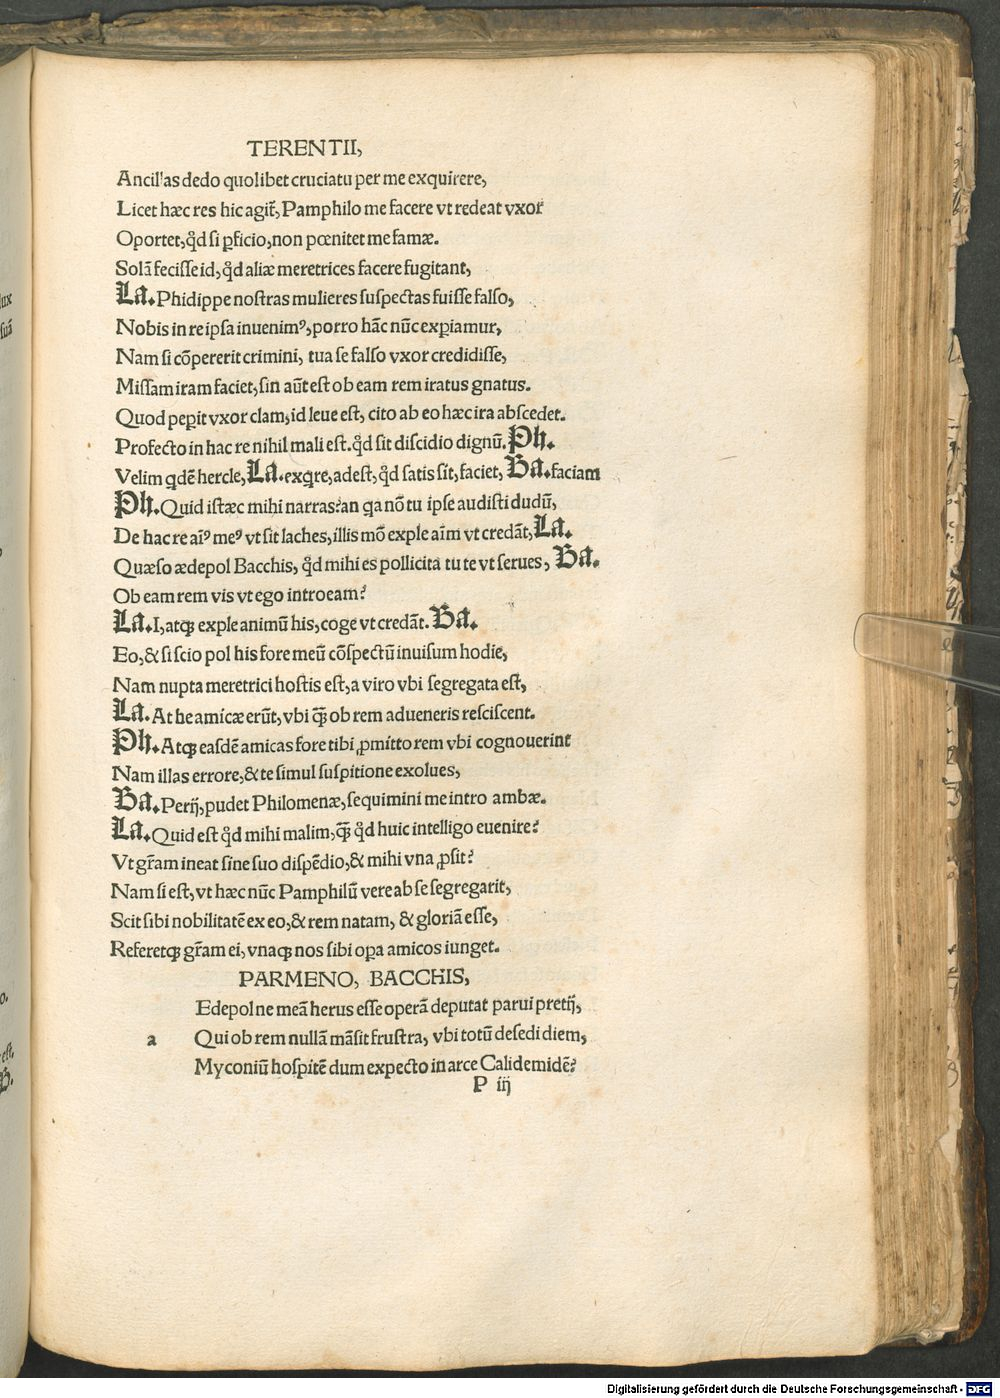 TERENTII,
Ancillas dedo quolibet cruciatu per me exquirere,
Licet hæc res hic agit̃, Pamphilo me facere vt redeat vxor
Oportet, qđ si ꝑficio, non pœnitet me famæ.
Solã fecisse id, qđ aliæ meretrices facere fugitant,
La. Phidippe nostras mulieres suspectas fuisse falso,
Nobis in re ipsa inuenimꝰ, porro hãc nũc exꝑiamur,
Nam si cõpererit crimini, tua se falso vxor credidisse,
Missam iram faciet, sin aũt est ob eam rem iratus gnatus.
Quod peꝑit vxor clam, id leue est, cito ab eo hæc ira abscedet.
Profecto in hac re nihil mali est. qđ sit discidio dignũ. Ph.
Velim qdẽ hercle, La. exqre, adest, qđ satis sit, faciet, Ba. faciam
Ph. Quid istæc mihi narras? an qa nõ tu ipse audisti dudũ,
De hac re aĩꝰ meꝰ vt sit laches, illis mõ exple aĩm vt credãt, La.
Quæso ædepol Bacchis, qđ mihi es pollicita tu te vt serues, Ba.
Ob eam rem vis vt ego introeam?
La. I, atqꝫ exple animũ his, coge vt credãt. Ba.
Eo, & si scio pol his fore meũ cõspectũ inuisum hodie,
Nam nupta meretrici hostis est, a viro vbi segregata est,
La. At he amicæ erũt, vbi q̃ꝫ ob rem adueneris resciscent.
Ph. Atqꝫ easdẽ amicas fore tibi ꝓmitto rem vbi cognouerint
Nam illas errore, & te simul suspitione exolues,
Ba. Perij, pudet Philomenæ, sequimini me intro ambæ.
La. Quid est qđ mihi malim, q̃ꝫ qđ huic intelligo euenire?
Vt gr̃am ineat sine suo dispẽdio, & mihi vna ꝓsit?
Nam si est, vt hæc nũc Pamphilũ vere ab se segregarit,
Scit sibi nobilitatẽ ex eo, & rem natam, & gloriã esse,
Referetqꝫ gr̃am ei, vnaqꝫ nos sibi oꝑa amicos iunget.
PARMENO, BACCHIS,
Edepol ne meã herus esse operã deputat parui pretij,
a Qui ob rem nullã mãsit frustra, vbi totũ desedi diem,
Myconiũ hospitẽ dum expecto in arce Calidemidẽ?
P iij
Digitalisierung gefördert durch die Deutsche Forschungsgemeinschaft - DFG